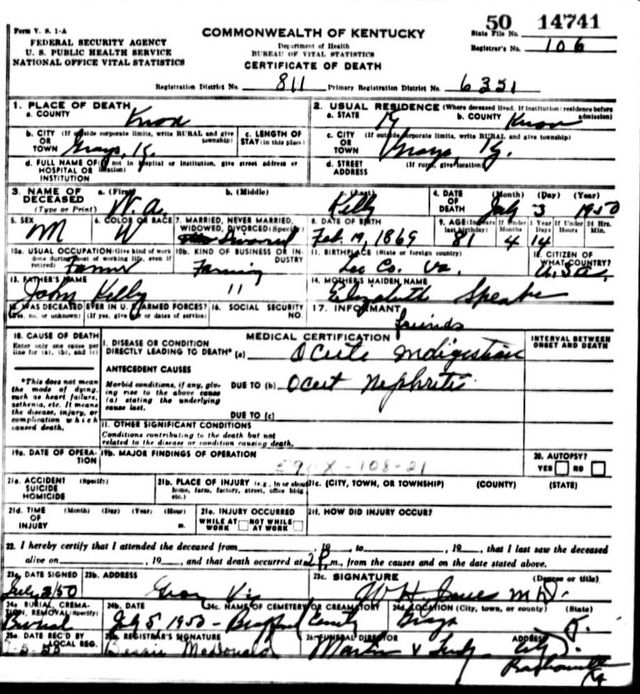 Form V. S. 1-A
FEDERAL SECURITY AGENCY
U. S. PUBLIC HEALTH SERVICE
NATIONAL OFFICE VITAL STATISTICS
COMMONWEALTH OF KENTUCKY
Department of Health
BUREAU OF VITAL STATISTICS
CERTIFICATE OF DEATH
50 14741
State File No.
Registrar's No. 106
Registration District No. 811 Primary Registration District No. 6351
1. PLACE OF DEATH
a. COUNTY Knox
2. USUAL RESIDENCE (Where deceased lived. If institution: residence before admission)
a. STATE Ky b. COUNTY Knox
b. CITY (If outside corporate limits, write RURAL and give township) OR TOWN Grays, K.
c. LENGTH OF STAY (in this place)
c. CITY (If outside corporate limits, write RURAL and give township) OR TOWN Grays Ky.
d. FULL NAME OF (If not in hospital or institution, give street address or location) HOSPITAL OR INSTITUTION
d. STREET ADDRESS (If rural, give location)
3. NAME OF DECEASED (Type or Print) a. (First) W. A. b. (Middle) c. (Last) Kelly
4. DATE OF DEATH (Month) (Day) (Year) July 3 1950
5. SEX M
6. COLOR OR RACE W
7. MARRIED, NEVER MARRIED, WIDOWED, DIVORCED (Specify) Divorced
8. DATE OF BIRTH Feb. 19, 1869
9. AGE (In years last birthday) 81 If Under 1 Year Months 4 Days 14 If Under 24 Hrs. Hours Min.
10a. USUAL OCCUPATION (Give kind of work done during most of working life, even if retired) Farmer
10b. KIND OF BUSINESS OR INDUSTRY Farming
11. BIRTHPLACE (State or foreign country) Lee Co. Va.
12. CITIZEN OF WHAT COUNTRY? U.S.A.
13. FATHER'S NAME Kelly "
14. MOTHER'S MAIDEN NAME Elizabeth
15. WAS DECEASED EVER IN U.S. ARMED FORCES? (Yes, no, or unknown) (If yes, give war or dates of service)
16. SOCIAL SECURITY NO.
17. INFORMANT friends
18. CAUSE OF DEATH
Enter only one cause per line for (a), (b), and (c)
*This does not mean the mode of dying, such as heart failure, asthenia, etc. It means the disease, injury, or complication which caused death.
MEDICAL CERTIFICATION
INTERVAL BETWEEN ONSET AND DEATH
I. DISEASE OR CONDITION DIRECTLY LEADING TO DEATH* (a) Acute Indigestion
ANTECEDENT CAUSES
Morbid conditions, if any, giving rise to the above cause (a) stating the underlying cause last.
DUE TO (b) Acut Nephritis
DUE TO (c)
II. OTHER SIGNIFICANT CONDITIONS
Conditions contributing to the death but not related to the disease or condition causing death.
19a. DATE OF OPERATION
19b. MAJOR FINDINGS OF OPERATION
590X-108-21
20. AUTOPSY? YES NO
21a. ACCIDENT SUICIDE HOMICIDE (Specify)
21b. PLACE OF INJURY (e.g., in or about home, farm, factory, street, office bldg. etc.)
21c. (CITY, TOWN, OR TOWNSHIP) (COUNTY) (STATE)
21d. TIME OF INJURY (Month) (Day) (Year) (Hour) m.
21e. INJURY OCCURRED WHILE AT WORK NOT WHILE AT WORK
21f. HOW DID INJURY OCCUR?
22. I hereby certify that I attended the deceased from , 19 , to , 19 , that I last saw the deceased
alive on , 19 , and that death occurred at 2 P m., from the causes and on the date stated above.
23a. DATE SIGNED
23b. ADDRESS Gray Ky
23c. SIGNATURE (Degree or title) W H Jones M D.
24a. BURIAL, CREMATION, REMOVAL (Specify) Burial
24b. DATE July 5, 1950
24c. NAME OF CEMETERY OR CREMATORY
24d. LOCATION (City, town, or county) (State) Grays
25a. DATE REC'D BY LOCAL REG.
25b. REGISTRAR'S SIGNATURE Bessie McDonald
26. FUNERAL DIRECTOR ADDRESS